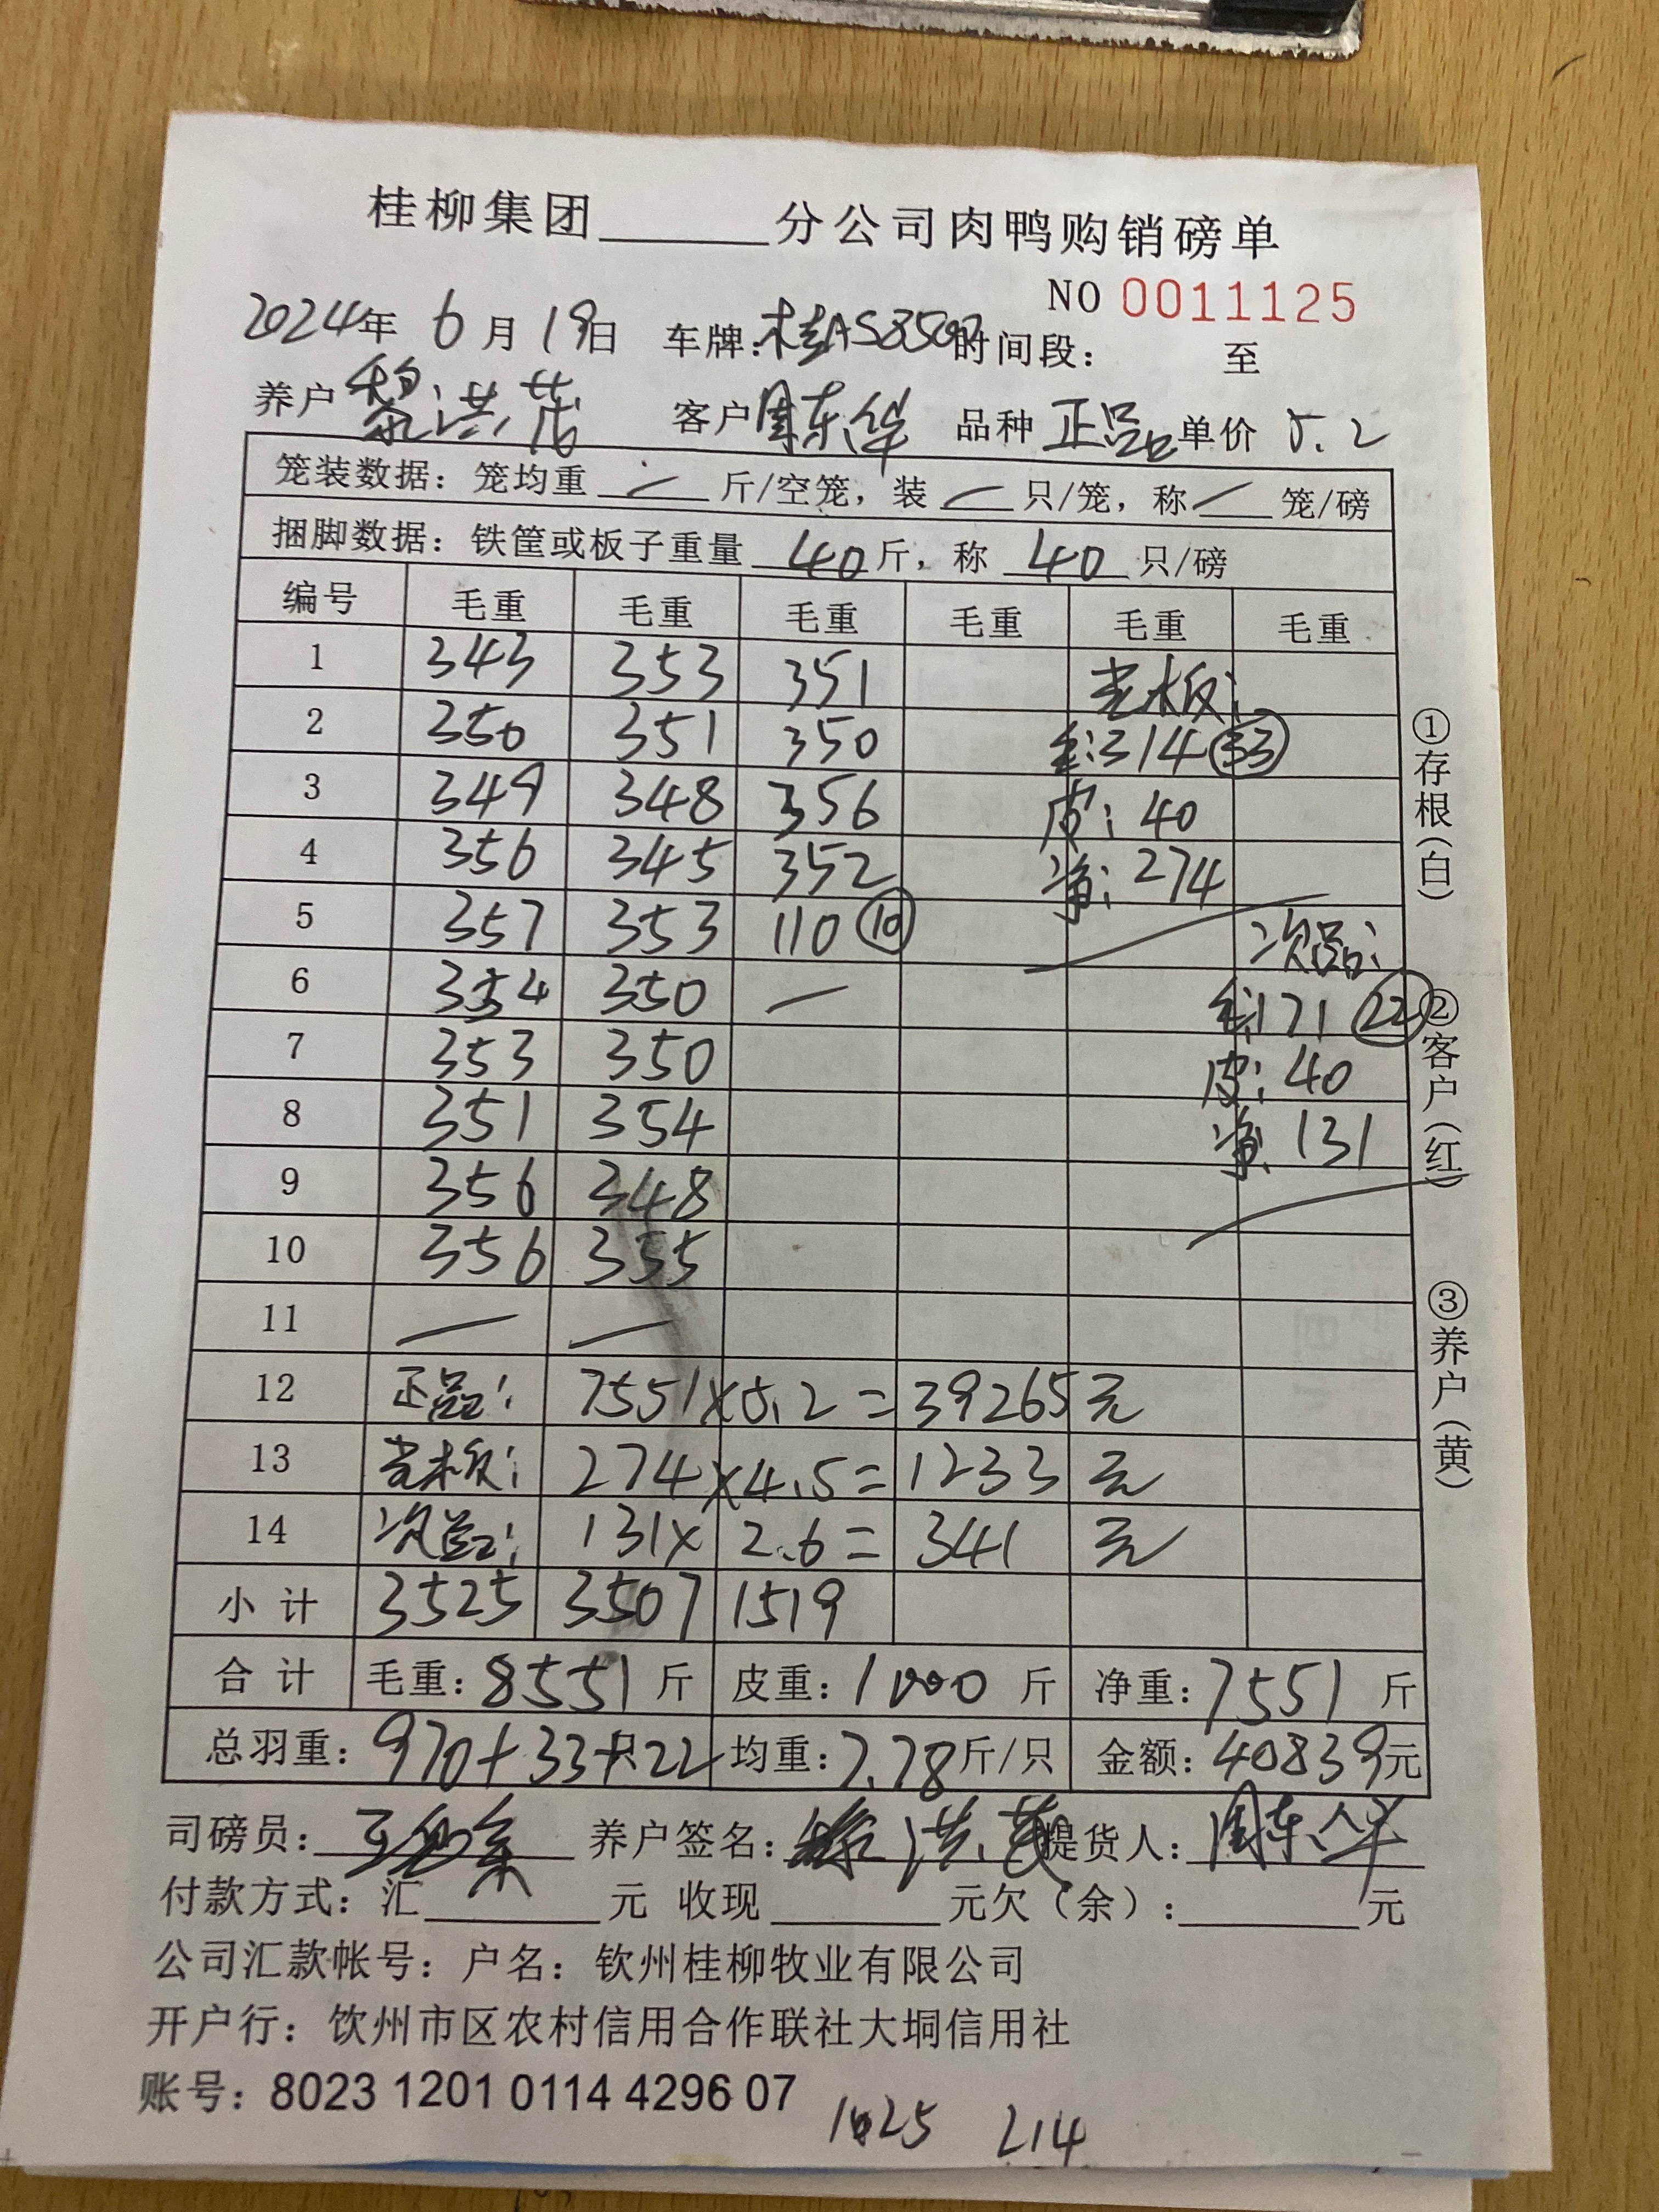 桂柳集团______分公司肉鸭购销磅单
NO 0011125
2024年 6月19日 车牌: 时间段: 至
养户 黎洪茂 客户 周东华 品种 正品 单价 5.2
笼装数据：笼均重 — 斤/空笼，装 — 只/笼，称 — 笼/磅
捆脚数据：铁筐或板子重量 40 斤，称 40 只/磅
编号 毛重 毛重 毛重 毛重 毛重 毛重
1 343 353 351 光板:
2 350 351 350 毛:314 33
3 349 348 356 皮: 40
4 356 345 352 净: 274
5 357 353 110 10 次品:
6 354 350 — 毛:171 22
7 353 350 皮: 40
8 351 354 净: 131
9 356 348
10 356 355
11 — —
12 正品: 7551×5.2=39265元
13 光板: 274×4.5=1233元
14 次品: 131×2.6=341元
小计 3525 3507 1519
合计 毛重: 8551 斤 皮重: 1000 斤 净重: 7551 斤
总羽重: 970+33+22 均重: 7.78斤/只 金额: 40839元
司磅员: 养户签名: 提货人: 周东华
付款方式: 汇______元 收现______元欠（余）:______元
公司汇款帐号：户名：钦州桂柳牧业有限公司
开户行：饮州市区农村信用合作联社大垌信用社
账号：8023 1201 0114 4296 07
1025 214
①存根(白)
②客户(红)
③养户(黄)